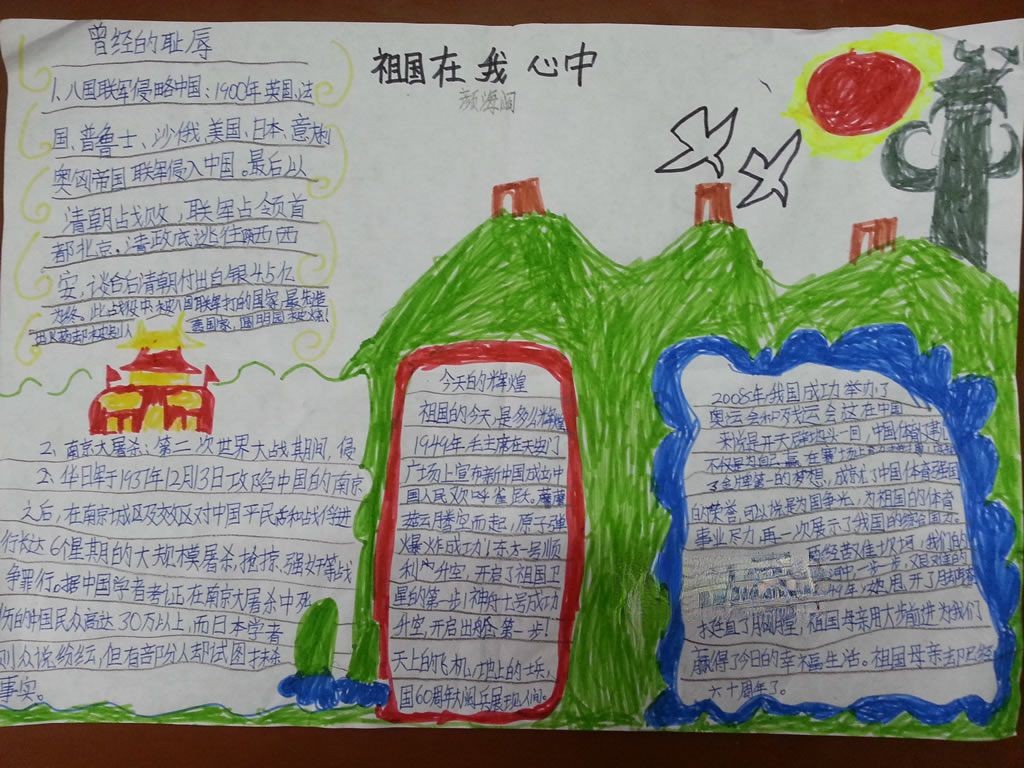 曾经的耻辱
1、八国联军侵略中国：1900年英国、法
国、普鲁士、沙俄、美国、日本、意大利
奥匈帝国联军侵入中国。最后以
清朝战败，联军占领首
都北京。清政底逃往陕西西
安，谈合后清朝付出白银4.5亿
为终。此战役中被八国联军打的国家，最先造
出火药却被别人
祖国在我心中
颜海闻
2、南京大屠杀：第二次世界大战期间，侵
华日军于1937年12月13日攻陷中国的南京
之后，在南京城区及郊区对中国平民和战俘进
行长达6个星期的大规模屠杀、抢掠、强奸等战
争罪行。据中国学者考证在南京大屠杀中死
伤的中国民众高达30万以上，而日本学者
则众说纷纭，但有部分人却试图抹杀
事实。
今天的辉煌
祖国的今天是多么辉煌
1949年毛主席在天安门
广场上宣布新中国成立中
国人民欢呼雀跃。
菇云腾空而起，原子弹
爆炸成功！东方一号顺
利升空，开启了祖国卫
星的第一步！神舟十号成功
升空，开启出舱第一步！
天上的飞机，地上的士兵，
国60周年大阅兵展现人间。
2008年我国成功举办了
奥运会和残运会这在中国
来说是开天辟地头一回，中国体育健儿
不仅是为自己赢
了金牌第一的梦想，成就了中国体育强国
的荣誉，可以说是为国争光，为祖国的体育
事业尽力，再一次展示了我国的综合国力。
我们的
一步一步，艰艰难难的
年，她甩开了
才挺直了胸膛，祖国母亲用大步前进为我们
赢得了今日的幸福生活。祖国母亲却已经
六十周年了。